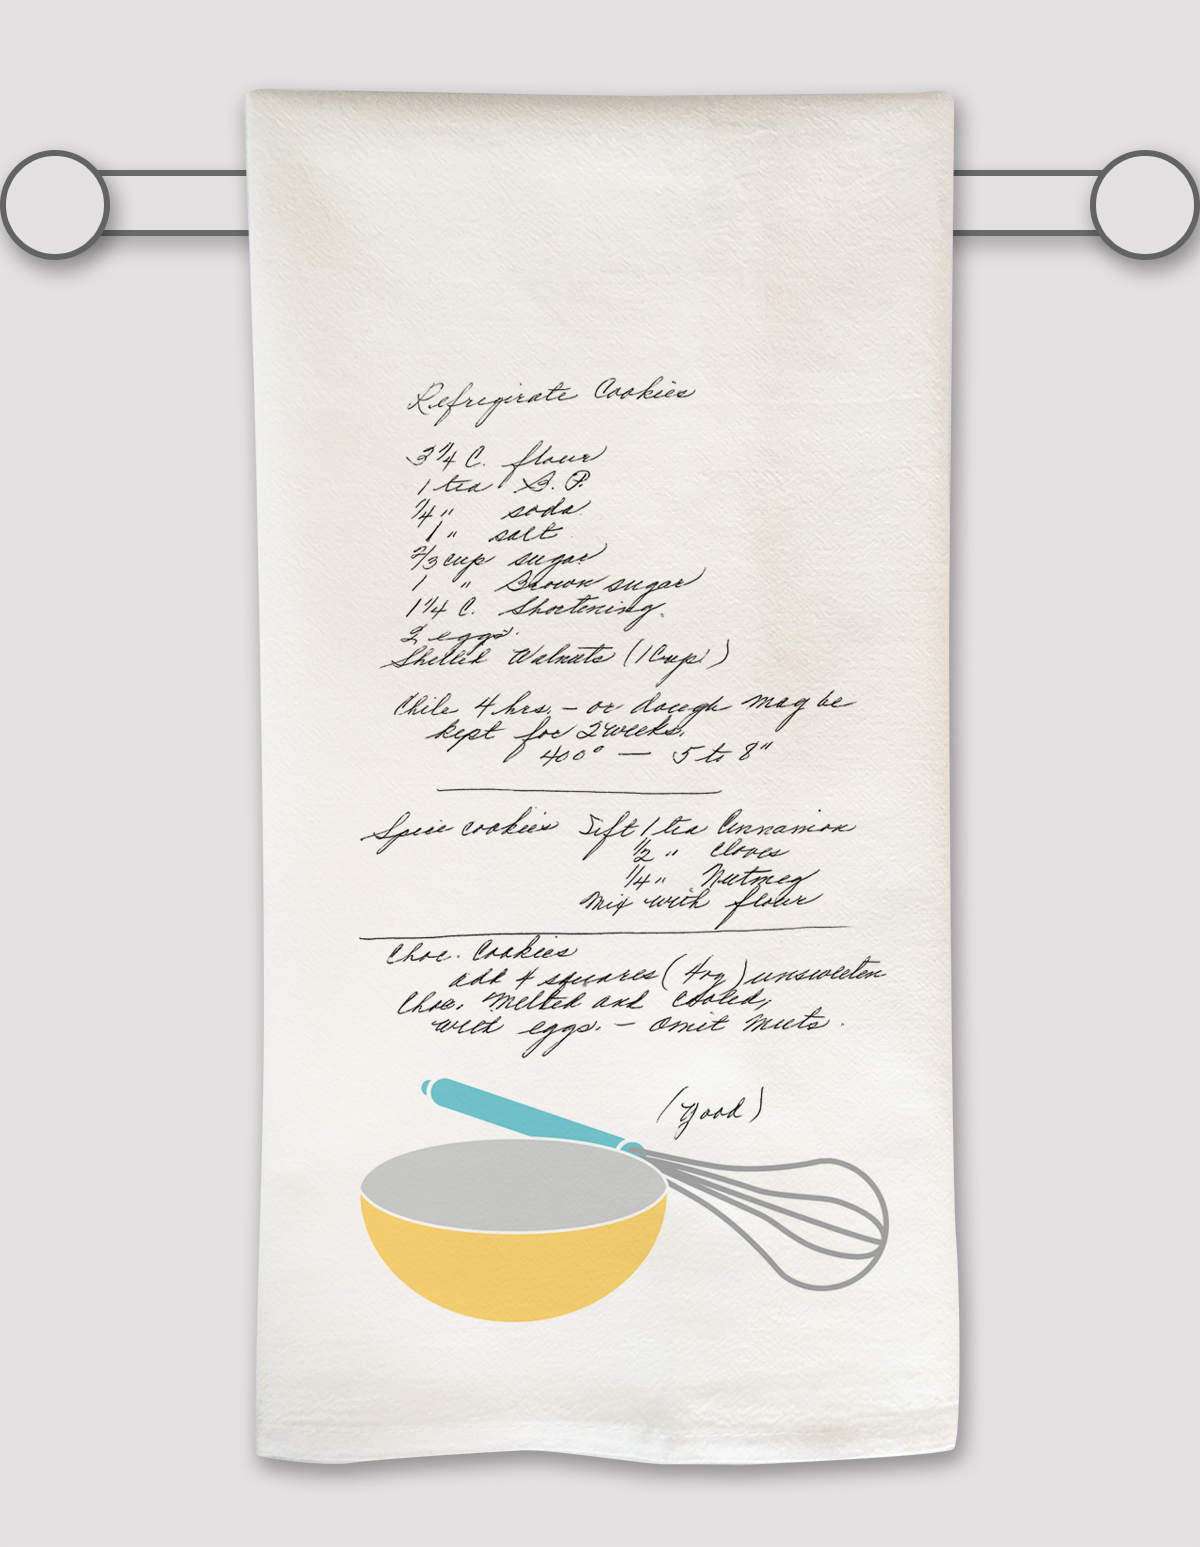 Refrigirate Cookies
3 1/4 C. flour
1 tea B. P.
1/4 " soda
1 " salt
2/3 cup sugar
1 " Brown sugar
1 1/4 C. Shortening.
2 eggs.
Shelled Walnuts (1 Cup)
Chile 4 hrs. – or dough may be
kept for 2 weeks.
400° — 5 to 8"
Spice cookies Sift 1 tea Cinnamon
1/2 " Cloves
1/4 " Nutmeg
Mix with flour
Choc. Cookies
add 4 squares (4oz) unsweeten
Choc. Melted and Cooled,
with eggs. – Omit Nuts.
(good)